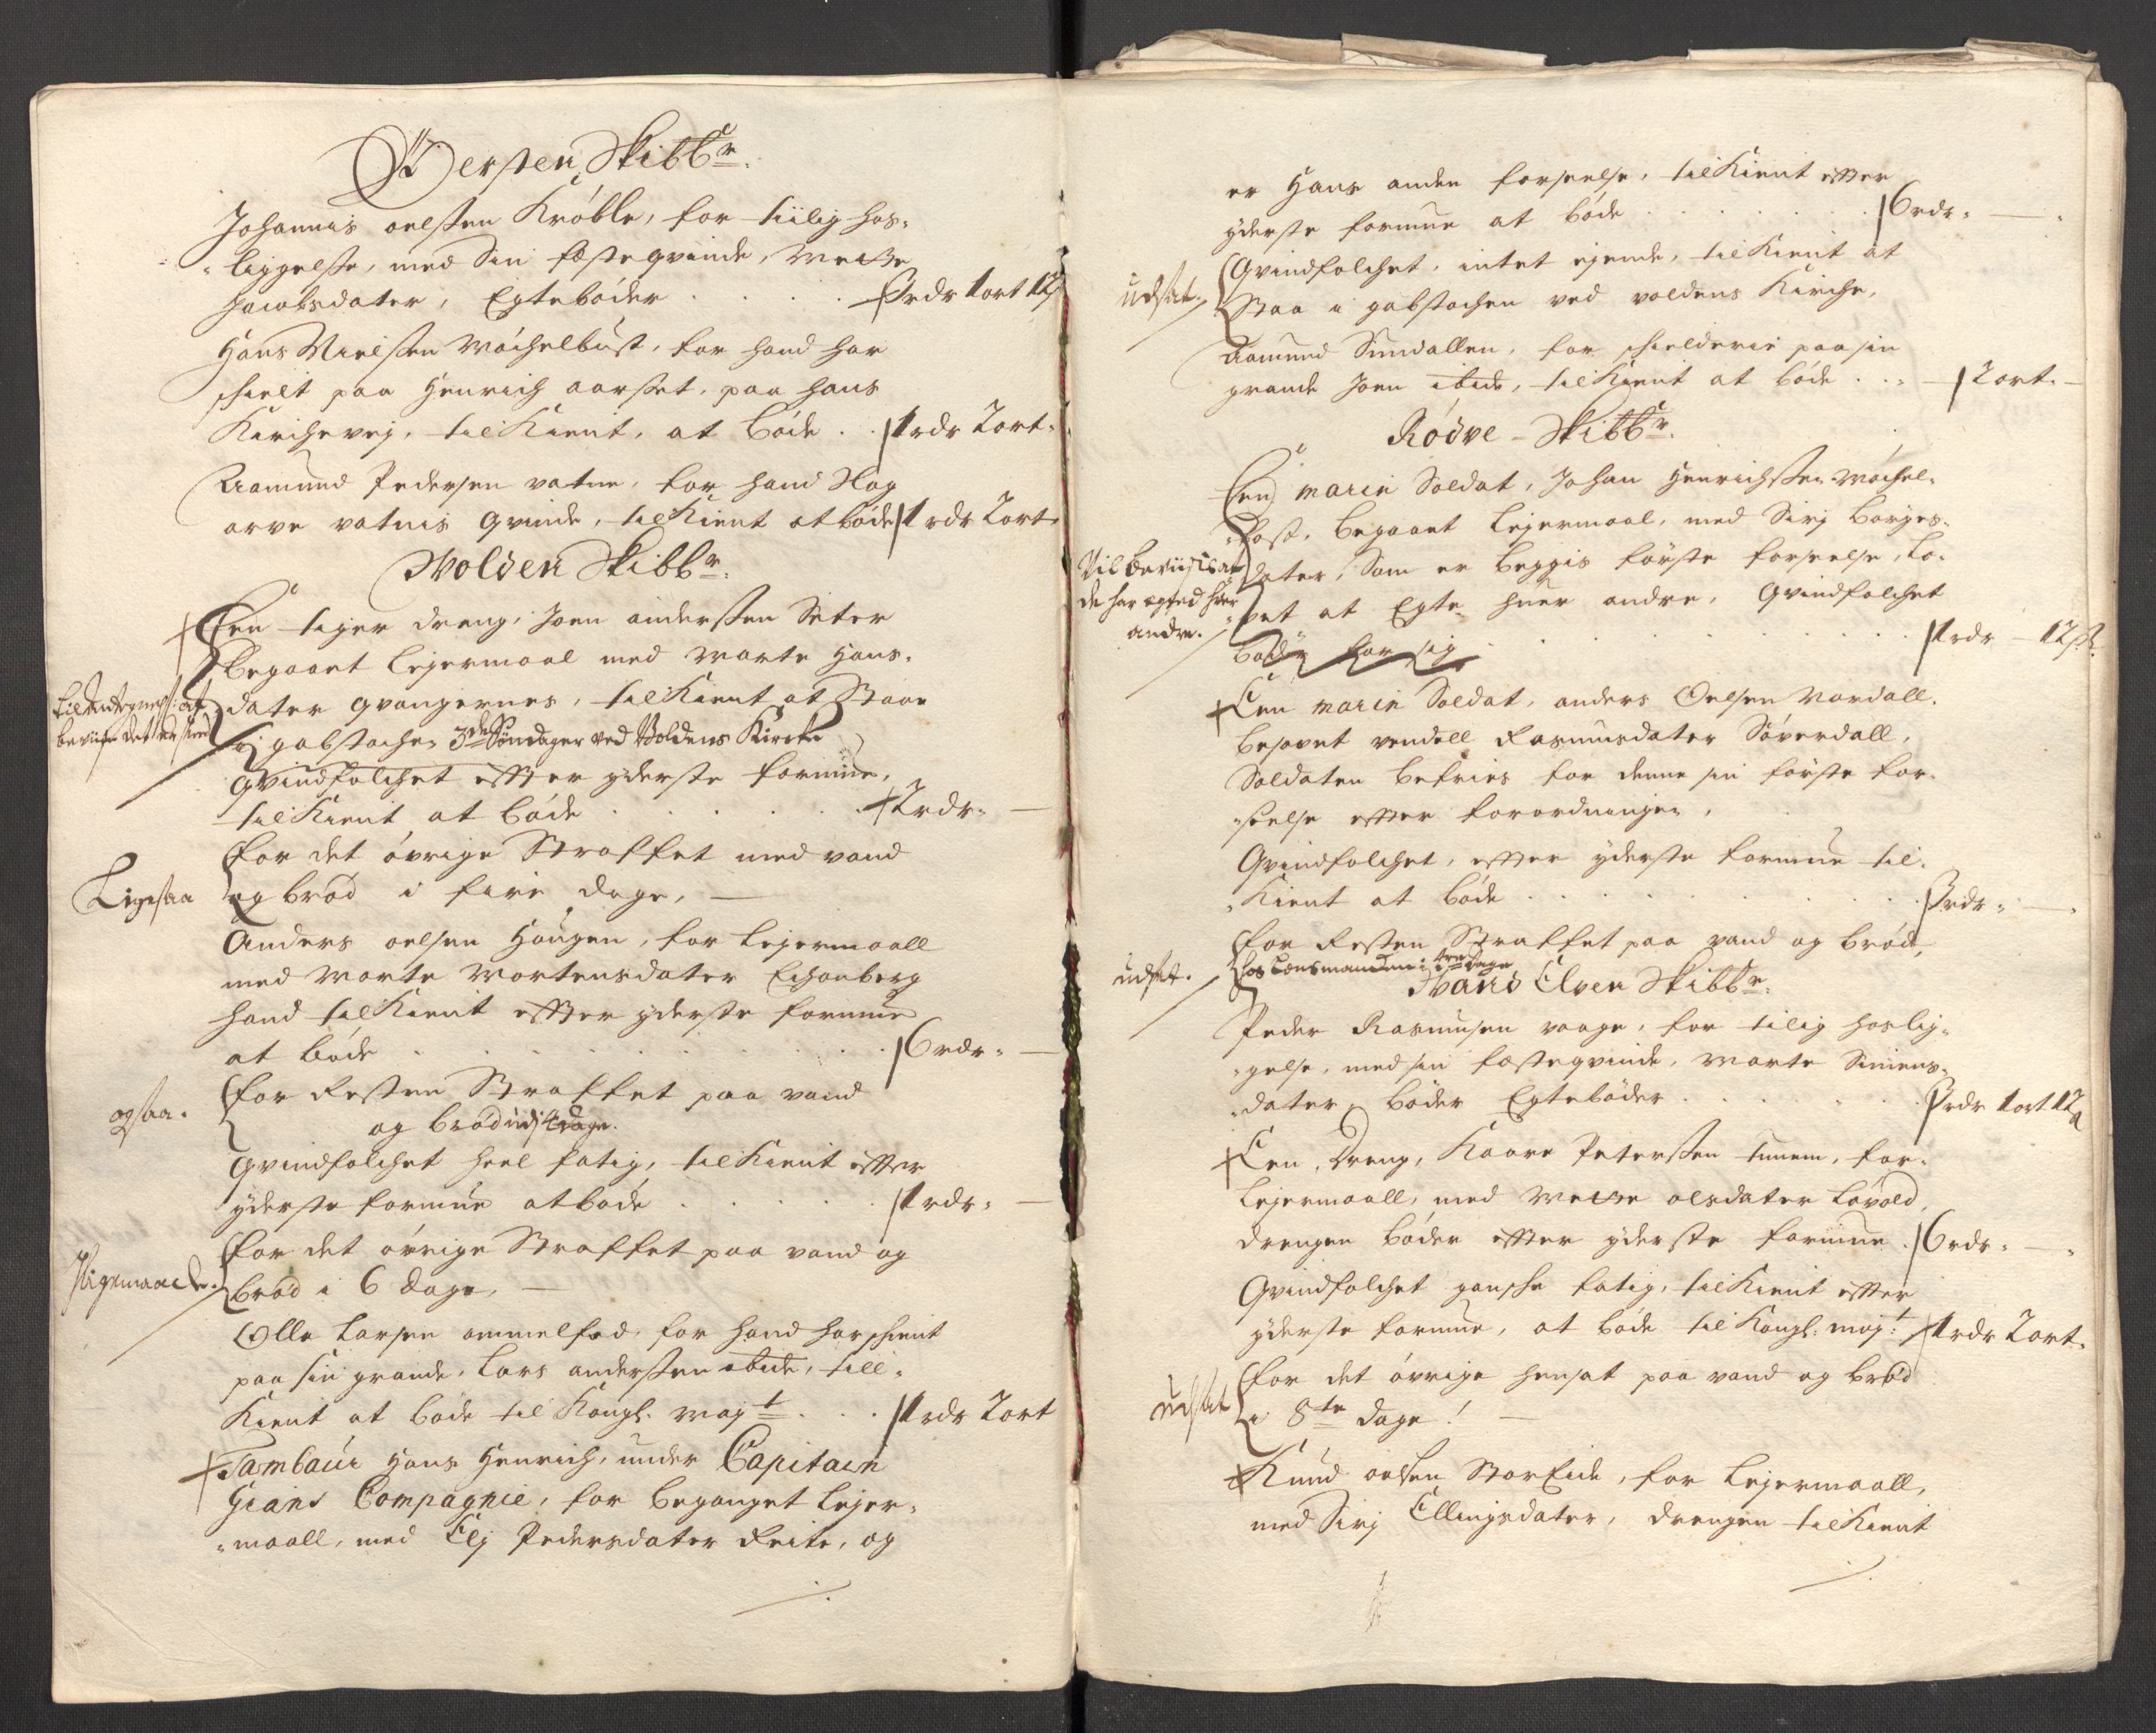 Wersten Skibbr.
Johannis oelssen Kröbbe, for tiilig hos-
liggelsse, med Sin festeqvinde, Mette
Jacobsdater, Egtebøder . . . . 3 rdr 1 ort 12 s
Hans Nielssen Wächelbust, for hand har
schielt paa Henrich aarsset, paa hans
Kirchevej, tilkient, at bøde . . 1 rdr 2 ort
Aamund Pedersen vatne, for hand slog
arve vatnis qvinde, tilkient at bøde 1 rdr 2 ort
Wolden Skibbr.
Een tiger dreng, Joen anderssen Seter
begaaet lejermaal med Marte Hans-
dater qvangernes, tilkient at Staae
i gabstochen 3de Söndager ved Woldens Kircke
qvindfolchet effter yderste formue,
tilkient at bøde . . . . . 2 rdr
for det øvrige Straffet med vand
og brød i fire dage,
Ligesaa
Anders oelsen Haugen, for lejermaall
med Marte Mortensdater Echonberg
hand tilkient effter yderste formue
at bøde . . . . . . 6 rdr
for Resten Straffet paa vand
og brød udj 4 dage.
ogsaa.
qvindfolchet heel fatig, tilkient effter
yderste formue at bøde . . . . 1 rdr
for det øvrige Straffet paa vand og
brød i 6 dage,
Ligemaade.
Olle Larsen ammelfed, for hand har schient
paa sin grande, Lars anderssen ibid, till-
Kient at bøde til Kongl. Mayt . . . 1 rdr 2 ort
Tambaur Hans Henrich, under Capitain
Gians Compagnie, for beganget lejer-
maall, med Elj Pedersdater Reite, og
er Hans anden forseelse, tilkient effter
yderste formue at bøde . . . . . 6 rdr
Qvindfolchet, intet ejende, tilkient at
Staa i gabstochen ved voldens Kirche,
udstat.
Aamund Sundallen, for schielderie paa sin
grande Joen ibid, tilkient at bøde . . 2 ort
Rødve - Skibbr.
Een Marin Soldat, Johan Henrichssen Wächel-
bost, begaaet lejermaal, med Sirj børges-
dater, Som er begges første forseelse, lo-
vet at Egte huer andre, Qvindfolchet
bøder for sig . . . . . 1 rdr - 12 s
Vil beviises at
de har egted huer
andre.
Een Marin Soldat, anders Oelsen Vardall,
besovet vendell Rasmusdater Söverdall,
Soldaten befries for denne sin første for-
seelse effter forordningen,
Qvindfolchet, effter yderste formue til-
Kient at bøde . . . . . . 3 rdr
for Resten Straffet paa vand og brød,
hos Lensmanden i tre dage
udstat.
Wans Elven Skibbr.
Peder Rasmusen vaage, for tilig hoslig-
gelse, med sin festeqvinde, Marte Simens-
dater, bøder Egtebøder . . . . 3 rdr 1 ort 12 s
Een Dreng, Kaare Peterssen tunem, for
Lejermaall, med Mette olsdater Lövold,
drengen bøder effter yderste formue . 6 rdr
Qvindfolchet gansche fatig, tilkient effter
yderste formue, at bøde til Kongl: mayt: 1 rdr 2 ort
for det øvrige hensat paa vand og brød
i 8te dage!
udstat
Knud oelssen Storeide, for Lejermaall,
med Sirj Ellingsdater, drengen tilkient